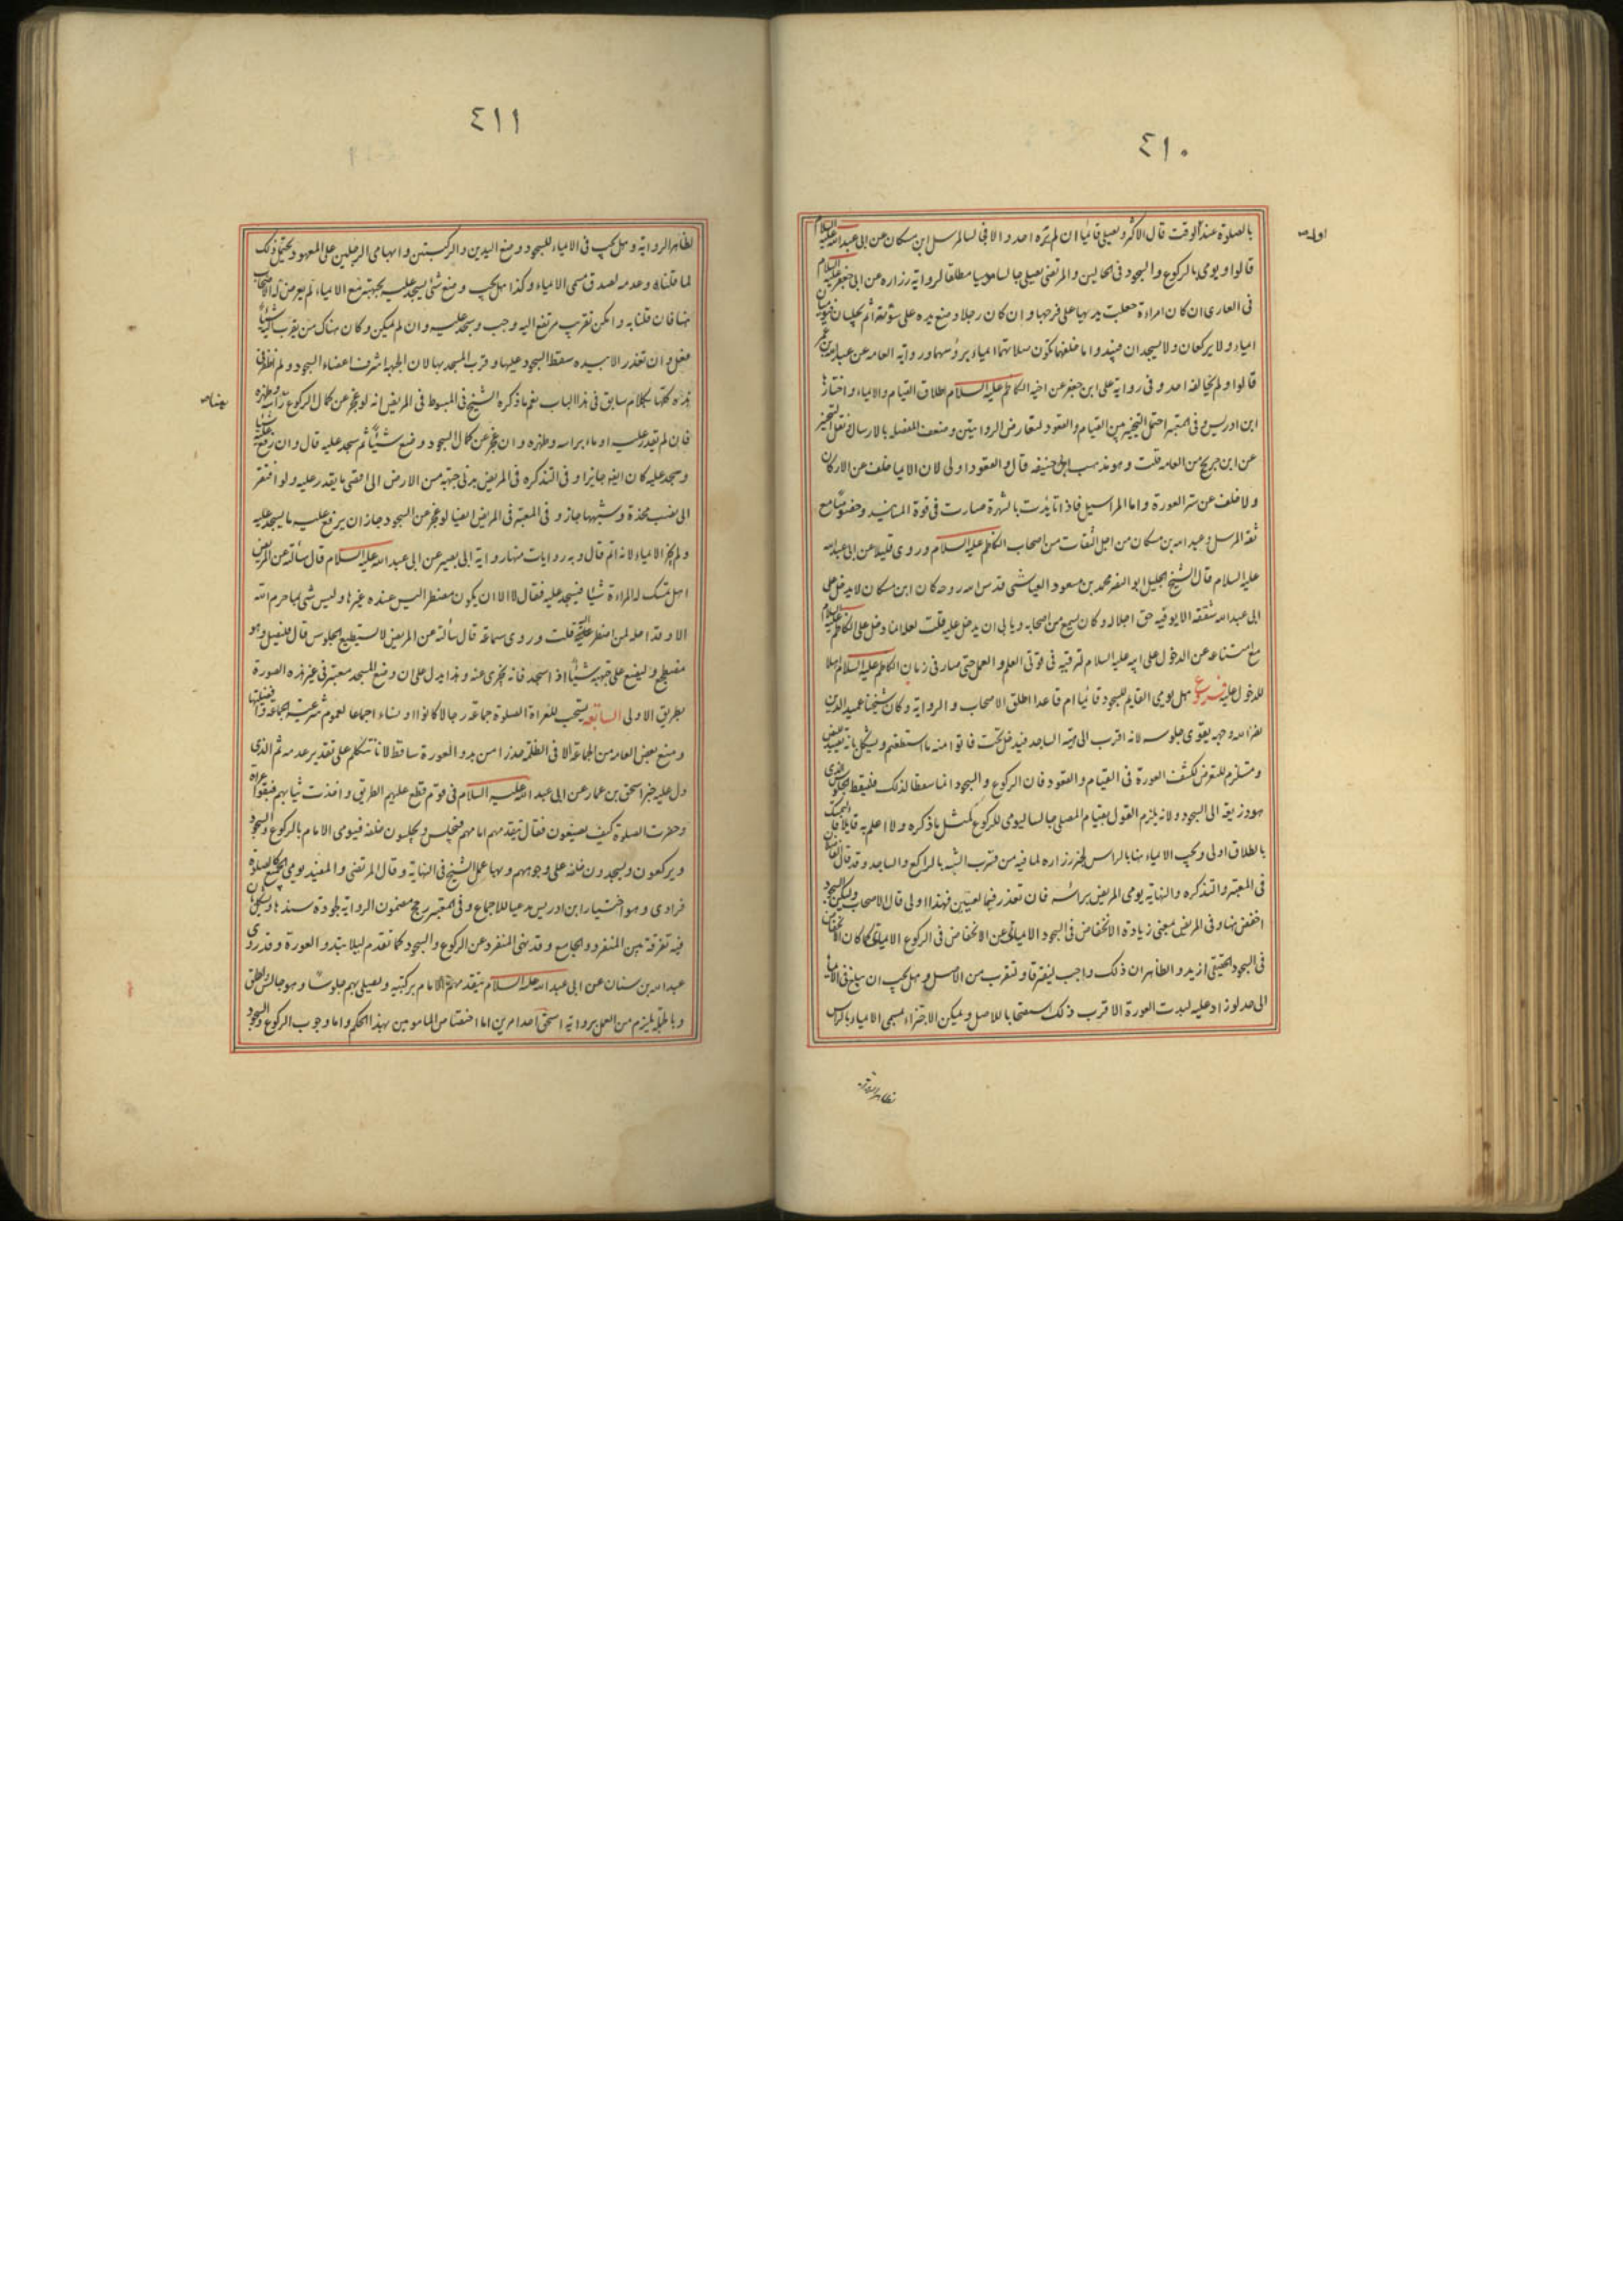 ٤١٠
بالصلوة عند الوقت قال الاكثر ويصلي قائما ان لم يره احد والا فجالسا لمرسل ابن مسكان عن ابي عبد الله عليه السلام
قالوا ويومي بالركوع والسجود في الحالين والمرتضى يصلي جالسا موميا مطلقا لرواية زراره عن ابي جعفر عليه السلام
في العاري ان كان امراة جعلت يديها على فرجها وان كان رجلا وضع يده على سؤته ثم يجلسان فيوميان
ايماء ولا يركعان ولا يسجدان فيبدوا ما خلفهما تكون صلاتهما ايماء برؤسهما ورواية العامه عن عبد الله بن عمر
قالوا ولم يخالفه احد وفي رواية على ابن جعفر عن اخيه الكاظم عليه السلام اطلاق القيام والايماء واختارها
ابن ادريس وفي المعتبر احتمل التخيير بين القيام والقعود لتعارض الروايتين وضعف المفصله بالارسال ونقل التخيير
عن ابن جريج من العامه قلت وهو مذهب ابي حنيفه قال والقعود اولى لان الايما خلف عن الاركان
ولا خلف عن ستر العورة واما المراسيل فاذا تايدت بالشهرة صارت في قوة المسانيد وخصوصا مع
ثقة المرسل وعبد الله بن مسكان من اجل الثقات من اصحاب الكاظم عليه السلام وروى قليلا عن ابي عبد الله
عليه السلام قال الشيخ الجليل ابو النضر محمد بن مسعود العياشى قدس الله روحه كان ابن مسكان لا يدخل على
ابي عبد الله شفقه الا يوفيه حق اجلاله وكان يسمع من اصحابه ويابى ان يدخل عليه قلت لعله انما دخل على الكاظم عليه السلام
مع امتناعه عن الدخول على ابيه عليه السلام لترقيه في قوتى العلم والعمل حتى صار في زمان الكاظم عليه السلام اهلا
للدخول عليه فرع هل يومي القايم للسجود قائما ام قاعدا اطلق الاصحاب والرواية وكان شيخنا عميد الدين
نضر الله وجهه يقوى جلوسه لانه اقرب الى هيئة الساجد فيدخل تحت فاتوا منه ما استطعتم ويشكل بانه تقييد للنص
ومستلزم للتعرض لكشف العورة في القيام والقعود فان الركوع والسجود انما سقطا لذلك فليقط الجلوس الذي
هو ذريعة الى السجود ولانه يلزم القول بقيام المصلى جالسا ليومي للركوع لمثل ما ذكره ولا اعلم به قايلا فالتمسك
بالطلاق اولى ويجب الايماء هنا بالراس لخبر زراره لما فيه من قرب الشبه بالراكع والساجد وقد قال الفاضلان
في المعتبر والتذكره والنهاية يومي المريض براسه فان تعذر فبالعينين فهذا اولى قال الاصحاب وليكن السجود
اخفض هنا وفي المريض معنى زيادة الانخفاض في السجود الايمائي عن الانخفاض في الركوع الايمائي كما كان الانخفاض
في السجود الحقيقي ازيد والظاهر ان ذلك واجب ليفترقا وتقرب من الاصل وهل يجب ان يبلغ في الايما
الى حد لو زاد عليه لبدت العورة الاقرب ذلك استصحابا للاصل ويمكن الاجتزاء بمسمى الايماء بالراس
٤١١
لظاهر الرواية وهل يجب في الايماء للسجود وضع اليدين والركبتين وابهامى الرجلين على المعهود يحتمل ذلك
لما قلناه وعدمه لصدق مسمى الايماء وكذا هل يجب وضع شئ يسجد عليه بجبهته مع الايماء لم يعرض له الاصحاب
هنا فان قلنا به وامكن تقريب مرتفع اليه وجب وسجد عليه وان لم يمكن وكان هناك من يقرب اليه شيئا
فعل وان تعذر الا بيده سقط السجود عليها وقرب المسجد بها لان الجبهة اشرف اعضاء السجود ولم نظفر في
هذه كلها بكلام سابق في هذا الباب نعم ما ذكره الشيخ في المبسوط في المريض انه لو عجز عن كمال الركوع براسه وظهره
فان لم يقدر عليه اوما براسه وظهره وان عجز عن كمال السجود وضع شيئا ثم سجد عليه قال وان رفع اليه شيئا
وسجد عليه كان ايضا جايزا وفي التذكره في المريض يدني جبهته من الارض الى اقصى ما يقدر عليه ولو افتقر
الى نصب مخدة وشبهها جاز وفي المعتبر في المريض ايضا لو عجز عن السجود جاز ان يرفع عليه ما يسجد عليه
ولم يجز الايماء لانه اتم قال وبه روايات منها رواية ابي بصير عن ابي عبد الله عليه السلام قال سألته عن المريض
اهل تمسك له المراءة شيئا فيسجد عليه فقال لا الا ان يكون مضطرا ليس عنده غيرها وليس شئ مما حرم الله
الا وقد احله لمن اضطر اليه قلت وروى سماعة قال سألته عن المريض لا يستطيع الجلوس قال فليصل وهو
مضطجع وليضع على جبهته شيئا اذا سجد فانه يجزي عنه وهذا يدل على ان وضع المسجد معتبر في غير هذه الصورة
بطريق الاولى السابعة يستحب للعراة الصلوة جماعة رجالا كانوا او نساء اجماعا لعموم شرعية الجماعة وافضليتها
ومنع بعض العامه من الجماعة الا في الظلمة حذرا من بدو العورة ساقط لانا نتكلم على تقدير عدمه ثم الذي
دل عليه خبر اسحق بن عمار عن ابي عبد الله عليه السلام في قوم قطع عليهم الطريق واخذت ثيابهم فبقوا عراة
وحضرت الصلوة كيف يصنعون فقال يتقدمهم امامهم فيجلس ويجلسون خلفه فيومى الامام بالركوع والسجود
ويركعون ويسجدون خلفه على وجوههم وبها عمل الشيخ في النهاية وقال المرتضى والمفيد يومي الجميع كالصلوة
فرادى وهو اختيار ابن ادريس مدعيا للاجماع وفي المعتبر رجح مضمون الرواية لجودة سندها ويشكل بان
فيه تفرقة بين المنفرد والجامع وقد نهى المنفرد عن الركوع والسجود كما تقدم لئلا تبدو العورة وقد روى
عبد الله بن سنان عن ابي عبد الله عليه السلام يتقدمهم الامام بركبتيه ويصلي بهم جلوسا وهو جالس واطلق
وبالجملة يلزم من العمل برواية اسحق احد امرين اما اختصاص المامومين بهذا الحكم واما وجوب الركوع والسجود